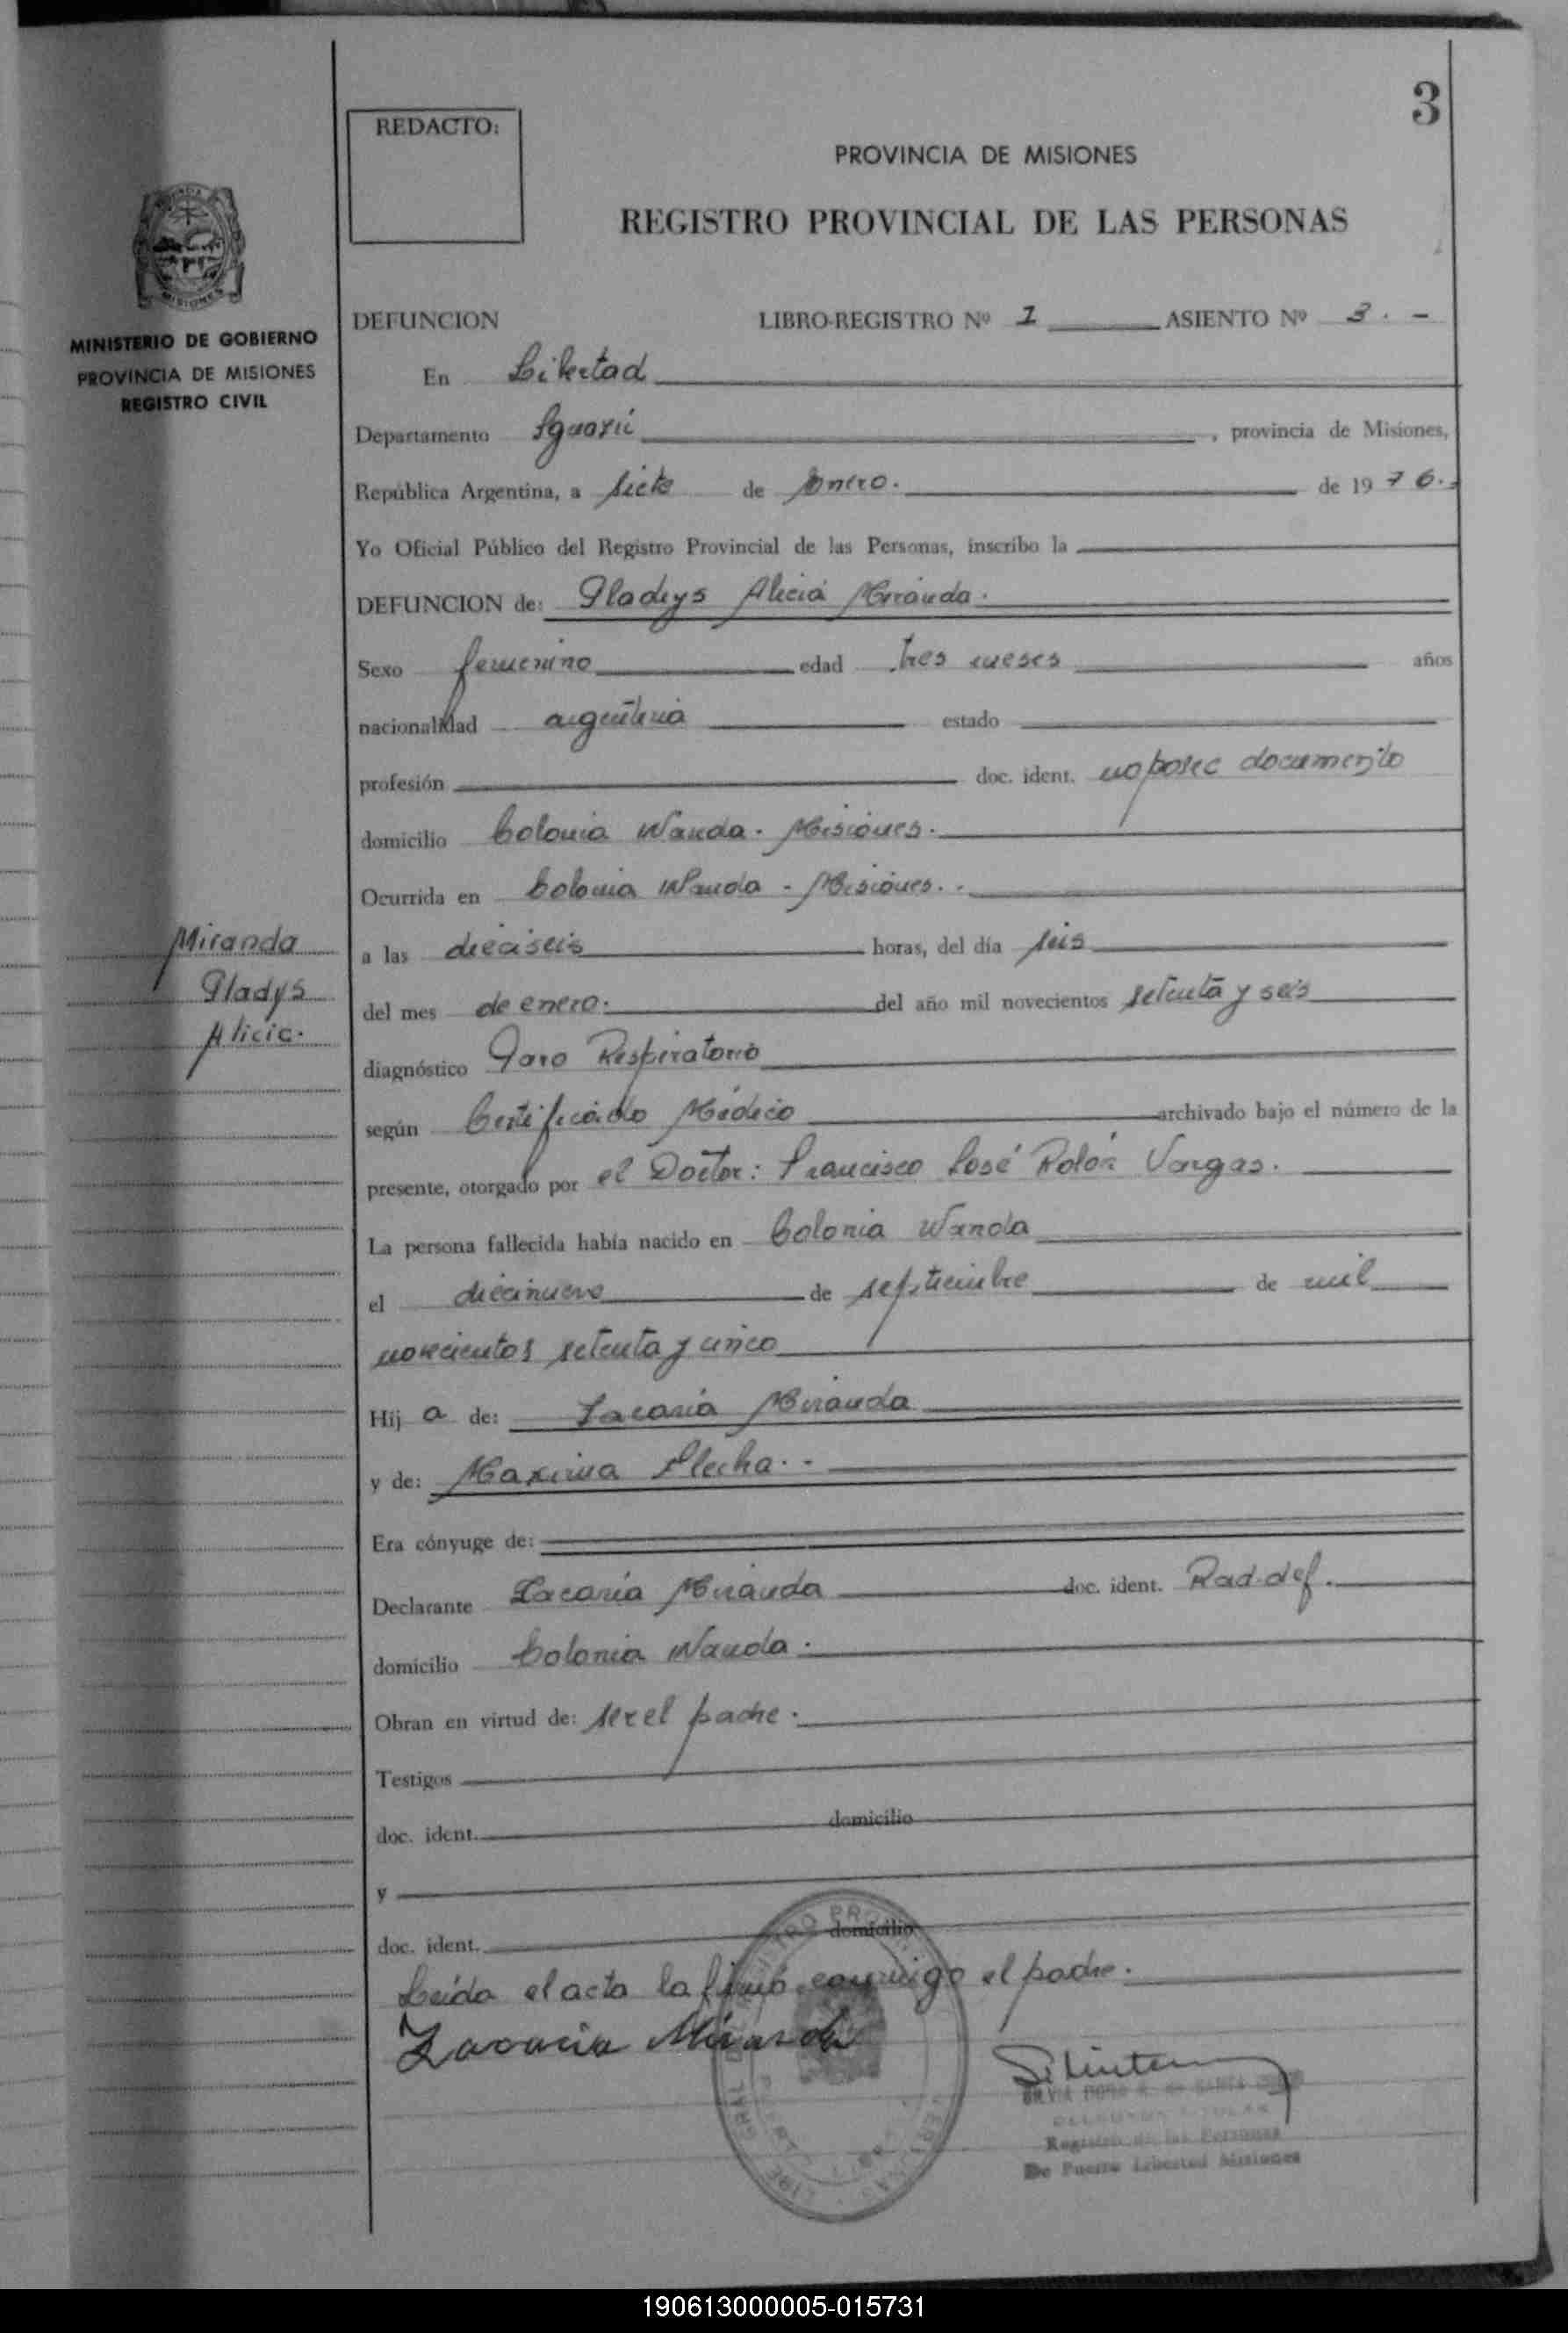 3
REDACTO:
PROVINCIA DE MISIONES
REGISTRO PROVINCIAL DE LAS PERSONAS
MINISTERIO DE GOBIERNO
PROVINCIA DE MISIONES
REGISTRO CIVIL
DEFUNCION LIBRO-REGISTRO Nº 1 ASIENTO Nº 3. -
En Libertad
Departamento Iguazú, provincia de Misiones,
República Argentina, a siete de Enero. de 1976.
Yo Oficial Público del Registro Provincial de las Personas, inscribo la
DEFUNCION de: Gladys Alicia Miranda.
Sexo femenino edad tres meses años
nacionalidad argentina estado
profesión doc. ident. no posee documento
domicilio Colonia Wanda. Misiones.
Ocurrida en Colonia Wanda - Misiones. -
Miranda
Gladys
Alicia.
a las dieciseis horas, del día seis
del mes de enero. del año mil novecientos setenta y seis
diagnóstico Paro Respiratorio
según Certificado Médico archivado bajo el número de la
presente, otorgado por el Doctor: Francisco José Rolón Vargas.
La persona fallecida había nacido en Colonia Wanda
el diecinueve de septiembre de mil
novecientos setenta y cinco
Hij a de: Zacaria Miranda
y de: Maxima Flecha. -
Era cónyuge de:
Declarante Zacaria Miranda doc. ident. Rad. def.
domicilio Colonia Wanda.
Obran en virtud de: ser el padre.
Testigos
doc. ident. domicilio
y
doc. ident. domicilio
Leída el acta la firmó conmigo el padre.
Zacaria Miranda
Registro de las Personas
De Puerto Libertad Misiones
190613000005-015731